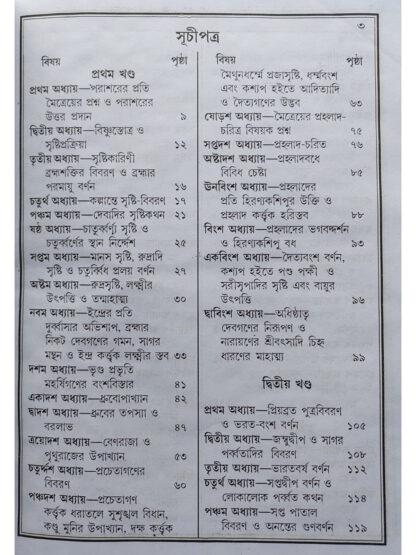 ৩
সূচীপত্র
বিষয় পৃষ্ঠা
প্রথম খণ্ড
প্রথম অধ্যায়—পরাশরের প্রতি
মৈত্রেয়ের প্রশ্ন ও পরাশরের
উত্তর প্রদান ৯
দ্বিতীয় অধ্যায়—বিষ্ণুস্তোত্র ও
সৃষ্টিপ্রক্রিয়া ১২
তৃতীয় অধ্যায়—সৃষ্টিকারিণী
ব্রহ্মশক্তির বিবরণ ও ব্রহ্মার
পরমায়ু বর্ণন ১৬
চতুর্থ অধ্যায়—কল্পান্তে সৃষ্টি-বিবরণ ১৭
পঞ্চম অধ্যায়—দেবাদির সৃষ্টিকথন ২১
ষষ্ঠ অধ্যায়—চাতুর্ব্বর্ণ্য সৃষ্টি ও
চতুর্ব্বর্ণের স্থান নির্দ্দেশ ২৫
সপ্তম অধ্যায়—মানস সৃষ্টি, রুদ্রাদি
সৃষ্টি ও চতুর্ব্বিধ প্রলয় বর্ণন ২৭
অষ্টম অধ্যায়—রুদ্রসৃষ্টি, লক্ষ্মীর
উৎপত্তি ও তন্মাহাত্ম্য ৩০
নবম অধ্যায়—ইন্দ্রের প্রতি
দুর্ব্বাসার অভিশাপ, ব্রহ্মার
নিকট দেবগণের গমন, সাগর
মন্থন ও ইন্দ্র কর্ত্তৃক লক্ষ্মীর স্তব ৩৩
দশম অধ্যায়—ভৃগু প্রভৃতি
মহর্ষিগণের বংশবিস্তার ৪১
একাদশ অধ্যায়—ধ্রুবোপাখ্যান ৪২
দ্বাদশ অধ্যায়—ধ্রুবের তপস্যা ও
বরলাভ ৪৭
ত্রয়োদশ অধ্যায়—বেণরাজা ও
পৃথুরাজের উপাখ্যান ৫৩
চতুর্দ্দশ অধ্যায়—প্রচেতাগণের
বিবরণ ৬০
পঞ্চদশ অধ্যায়—প্রচেতাগণ
কর্ত্তৃক ধরাতলে সুশৃঙ্খল বিধান,
কণ্ডু মুনির উপাখ্যান, দক্ষ কর্ত্তৃক
বিষয় পৃষ্ঠা
মৈথুনধর্ম্মে প্রজাসৃষ্টি, ধর্ম্মবংশ
এবং কশ্যপ হইতে আদিত্যাদি
ও দৈত্যগণের উদ্ভব ৬৩
ষোড়শ অধ্যায়—মৈত্রেয়ের প্রহ্লাদ-
চরিত্র বিষয়ক প্রশ্ন ৭৫
সপ্তদশ অধ্যায়—প্রহ্লাদ-চরিত ৭৬
অষ্টাদশ অধ্যায়—প্রহ্লাদবধে
বিবিধ চেষ্টা ৮৫
ঊনবিংশ অধ্যায়—প্রহ্লাদের
প্রতি হিরণ্যকশিপুর উক্তি ও
প্রহ্লাদ কর্ত্তৃক হরিস্তব ৮৮
বিংশ অধ্যায়—প্রহ্লাদের ভগবদ্দর্শন
ও হিরণ্যকশিপু বধ ৯৩
একবিংশ অধ্যায়—দৈত্যবংশ বর্ণন,
কশ্যপ হইতে পশু পক্ষী ও
সরীসৃপাদির সৃষ্টি এবং বায়ুর
উৎপত্তি ৯৬
দ্বাবিংশ অধ্যায়—অধিষ্ঠাতৃ
দেবগণের নিরূপণ ও
নারায়ণের শ্রীবৎসাদি চিহ্ন
ধারণের মাহাত্ম্য ৯৯
দ্বিতীয় খণ্ড
প্রথম অধ্যায়—প্রিয়ব্রত পুত্রবিবরণ
ও ভরত-বংশ বর্ণন ১০৫
দ্বিতীয় অধ্যায়—জম্বুদ্বীপ ও সাগর
পর্ব্বতাদির বিবরণ ১০৮
তৃতীয় অধ্যায়—ভারতবর্ষ বর্ণন ১১২
চতুর্থ অধ্যায়—সপ্তদ্বীপ বর্ণন ও
লোকালোক পর্ব্বত কথন ১১৪
পঞ্চম অধ্যায়—সপ্ত পাতাল
বিবরণ ও অনন্তের গুণবর্ণন ১১৯